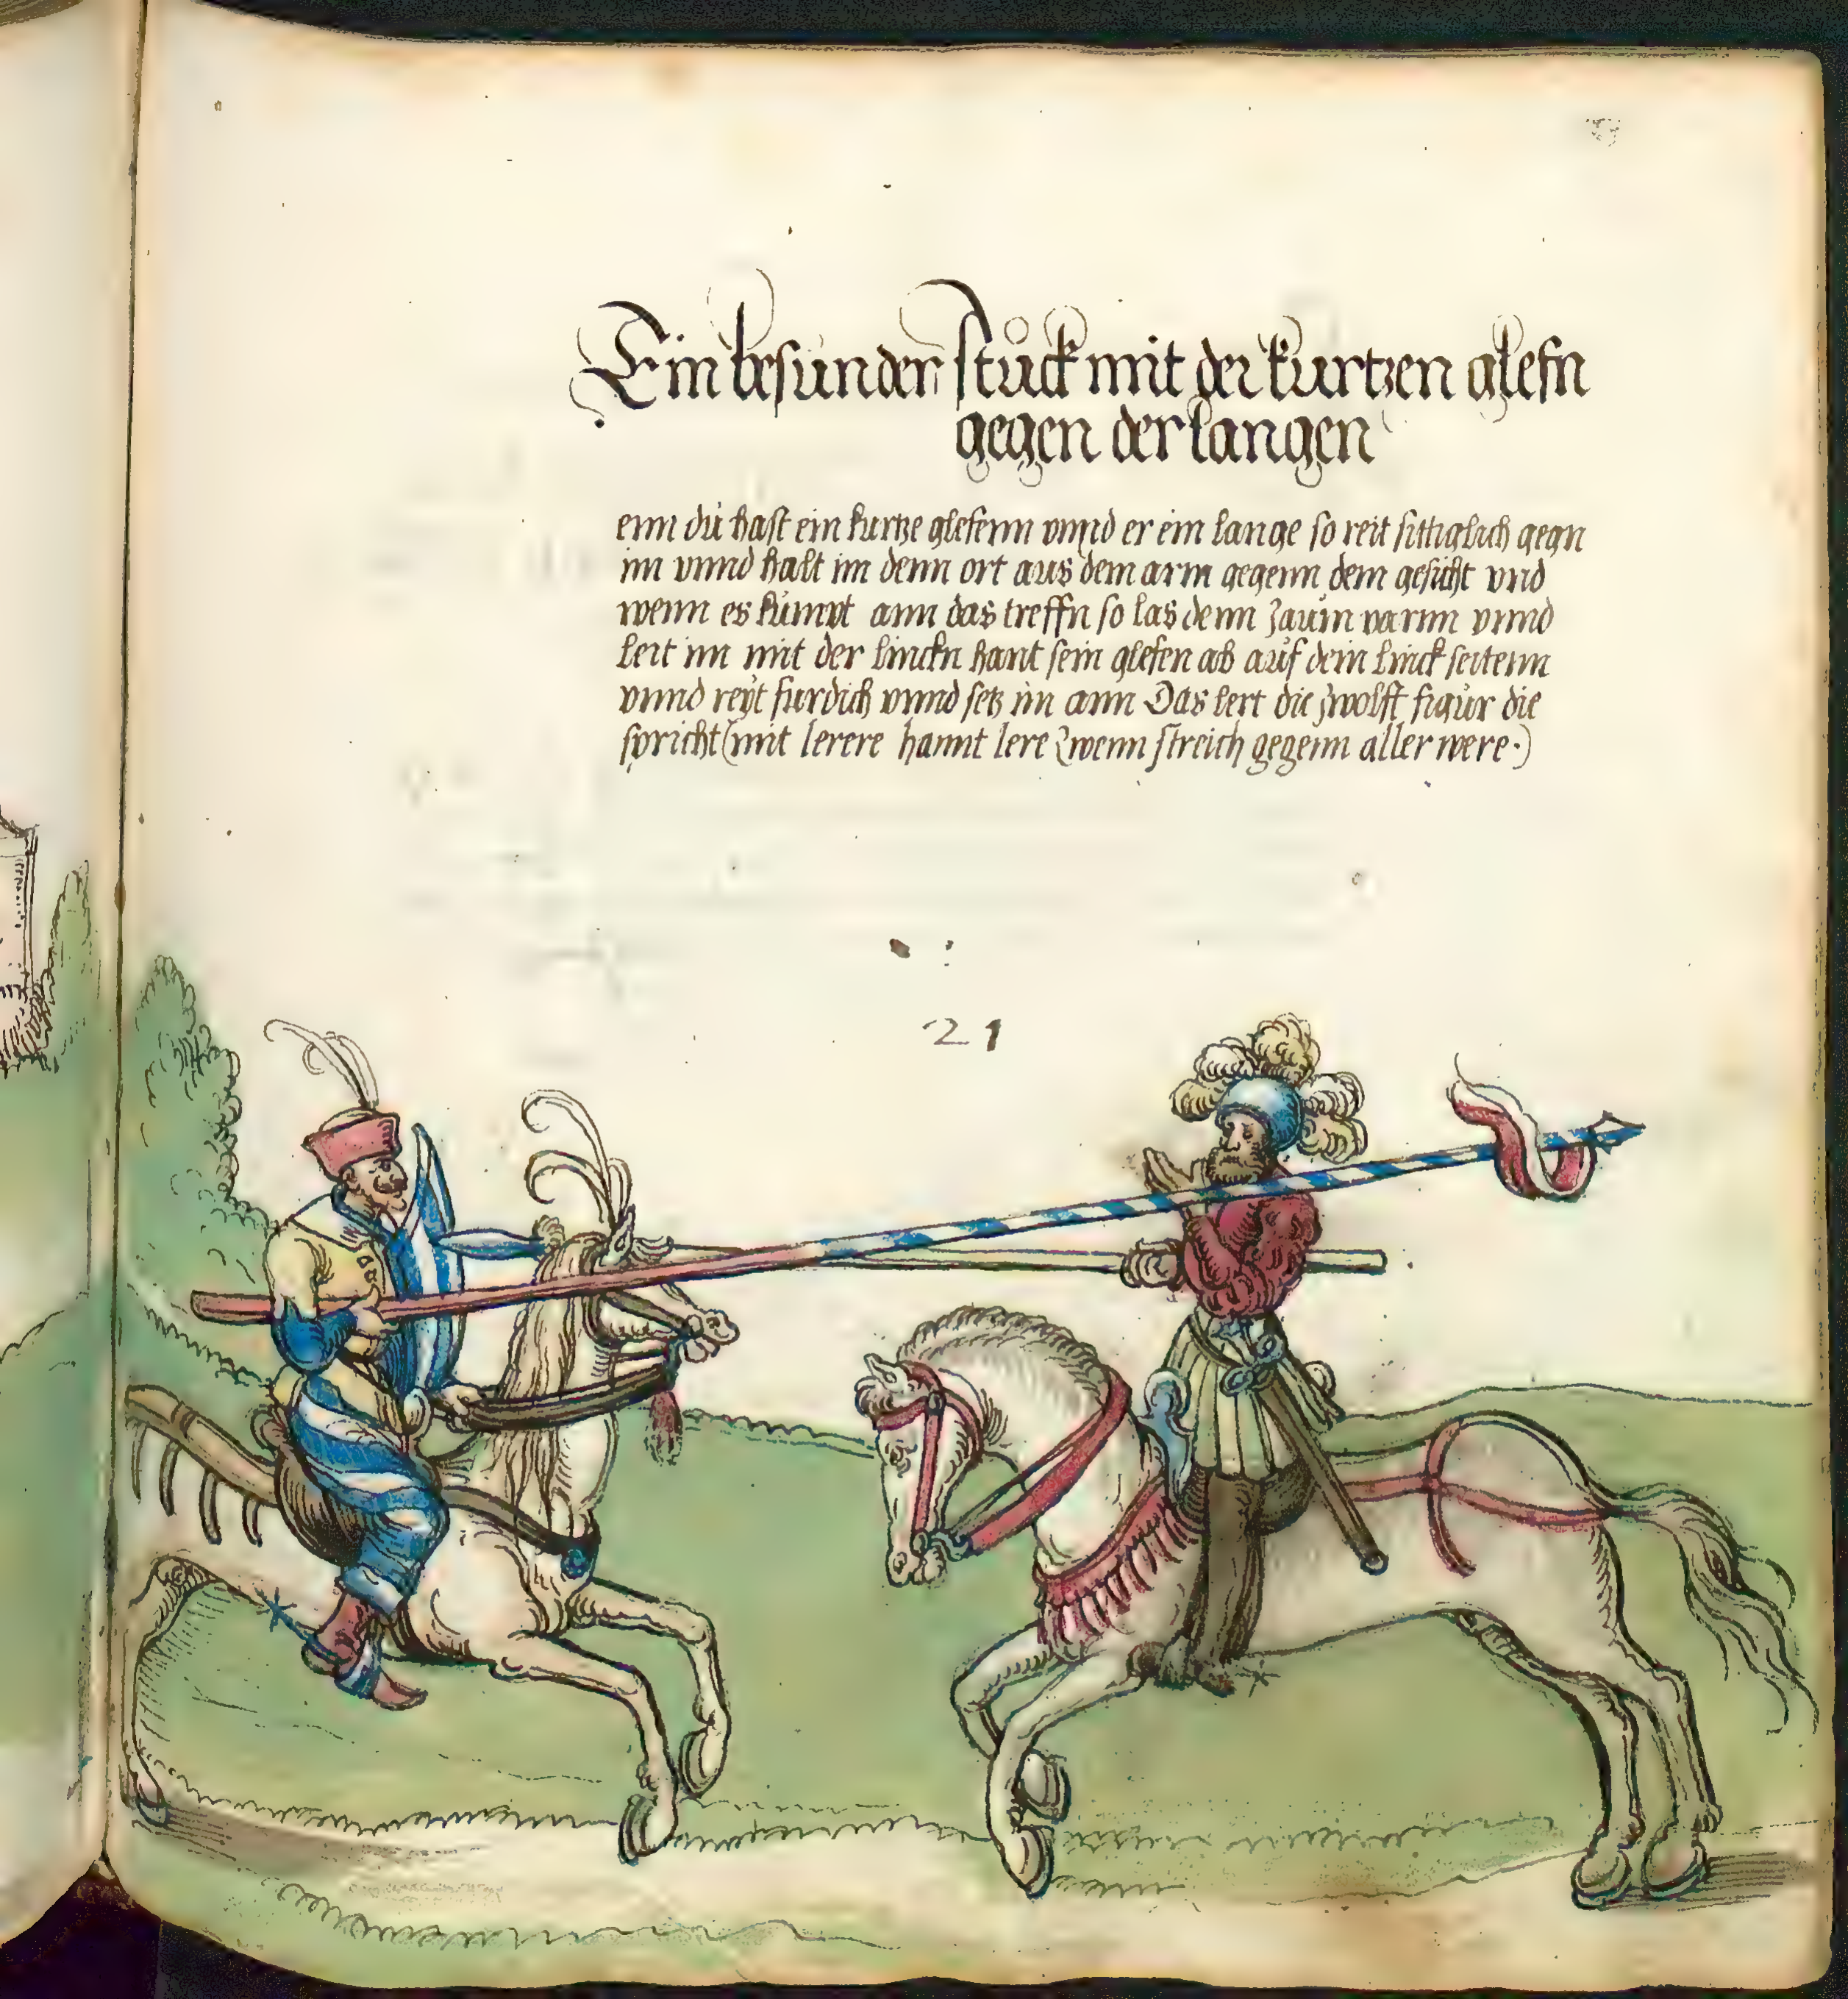 Ein besunder stůck mit der kurtzen glefn
gegen der langen
enn du hast ein kurtze glefenn vnnd er ein lange so reit sittiglich gegn
im vnnd halt im denn ort aus dem arm gegenn dem gesicht vnd
wenn es kůmpt ann das treffn so las denn zaům varnn vnnd
leit im mit der linckn hant sein glefen ab aůf dein linck seitenn
vnnd reyt furdich vnnd setz im ann Das lert die zwolfft figůr die
spricht (mit lerere hannt lere zwenn streich gegenn aller were.)
21